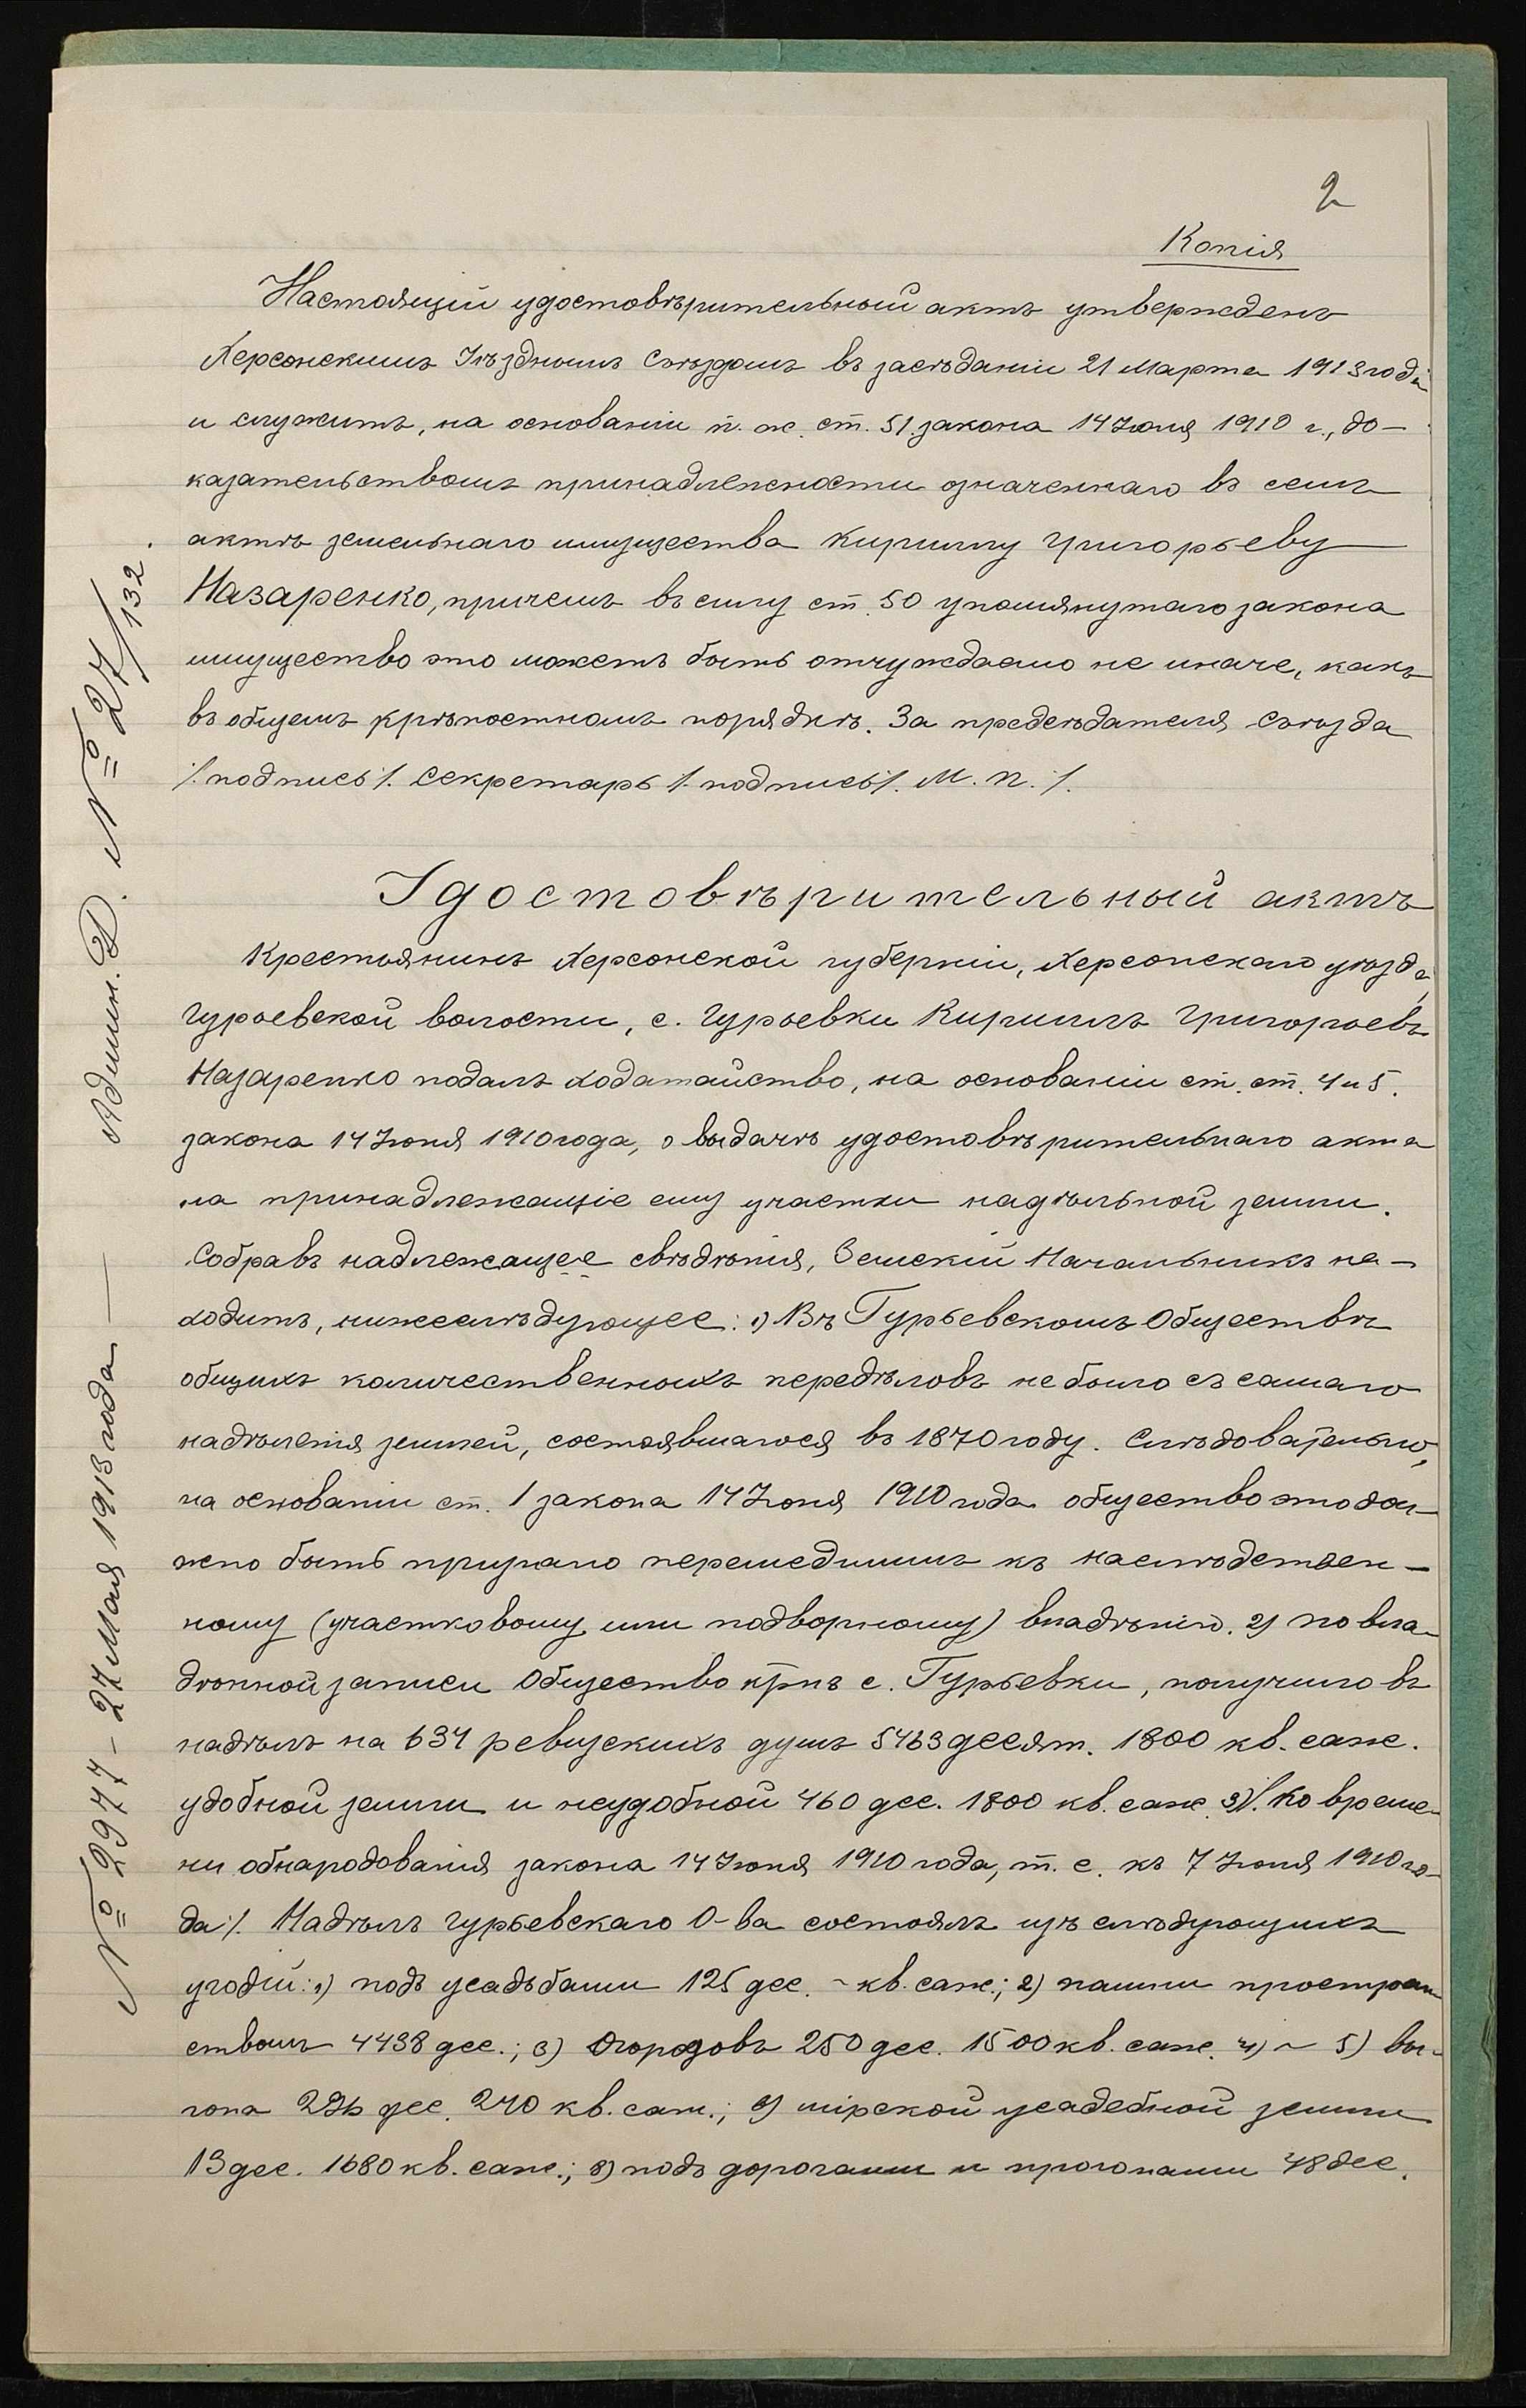 2
Копія
Настоящій удостовѣрительный актъ утвержденъ
Херсонскимъ Уѣзднымъ Съѣздомъ въ засѣданіи 21 Марта 1913 года
и служитъ, на основаніи п. ж. ст. 51. закона 14 Іюня 1910 г., до-
казательствомъ принадлежности означеннаго въ семъ
актѣ земельнаго имущества Кириллу Григорьеву
Назаренко, причемъ въ силу ст. 50 упомянутаго закона
имущество это можетъ быть отчуждаемо не иначе, какъ
въ общемъ крѣпостномъ порядкѣ. За предсѣдателя Съѣзда
/. подпись /. Секретарь /. подпись /. М. П. /.
Удостовѣрительный актъ
Крестьянинъ Херсонской губерніи, Херсонскаго уѣзда,
Гурьевской волости, с. Гурьевки Кириллъ Григорьевъ
Назаренко подалъ ходатайство, на основаніи ст. ст. 4 и 5.
закона 14 Іюня 1910 года, о выдачѣ удостовѣрительнаго акта
на принадлежащіе ему участки надѣльной земли.
Собравъ надлежащее свѣдѣнія, Земскій Начальникъ на-
ходитъ, нижеслѣдующее: 1) Въ Гурьевскомъ Обществѣ
общихъ количественныхъ передѣловъ не было съ самаго
надѣленія землей, состоявшагося въ 1870 году. Слѣдовательно,
на основаніи ст. 1 закона 14 Іюня 1910 года общество это дол-
жно быть признано перешедшимъ къ наслѣдствен-
ному (участковому или подворному) владѣнію. 2) По вла-
дѣнной записи Общество крнъ с. Гурьевки, получило въ
надѣлъ на 634 ревизскихъ душъ 5463 десят. 1800 кв. саж.
удобной земли и неудобной 460 дес. 1800 кв. саж. 3) /. Ко време-
ни обнародованія закона 14 Іюня 1910 года, т. е. къ 7 Іюня 1910 го-
да /. Надѣлъ Гурьевскаго О-ва состоялъ изъ слѣдующихъ
угодій: 1) подъ усадьбами 125 дес. ~ кв. саж.; 2) пашни простран
ствомъ 4438 дес.; 3) Огородовъ 250 дес. 1500 кв. саж. 4) ~ 5) вы-
гона дес. 240 кв. саж.; мірской усадебной земли
13 дес. 1680 кв. саж.; 8) подъ дорогами и прогонами 48 дес.
№ 2977 - 27 Мая 1913 года — Админ. № 27/132.